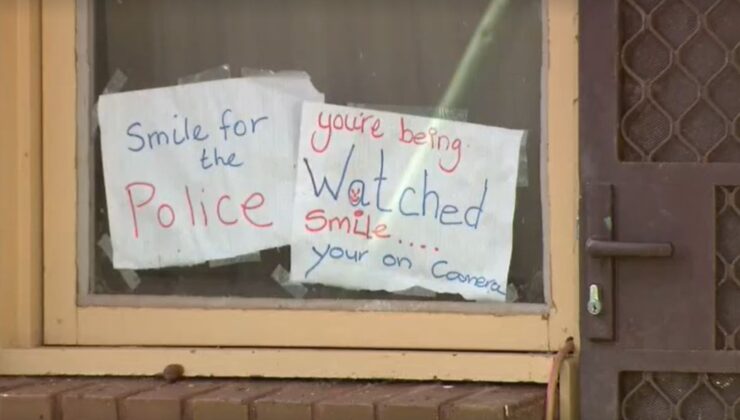 Smile for
the
Police
you're being
Watched
Smile....
your on Camera